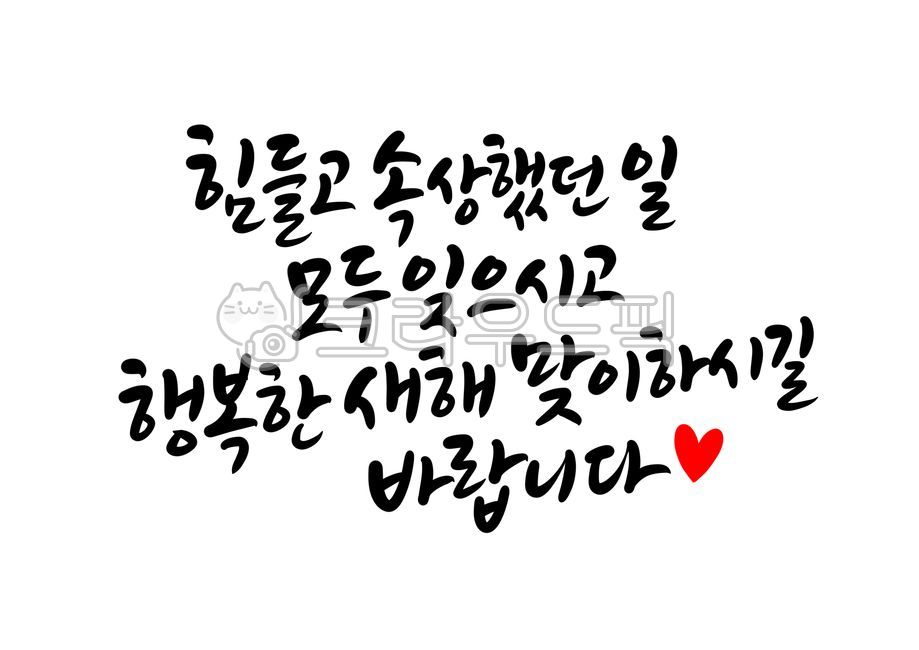 힘들고 속상했던 일
모두 잊으시고
크라우드픽
행복한 새해 맞이하시길
바랍니다